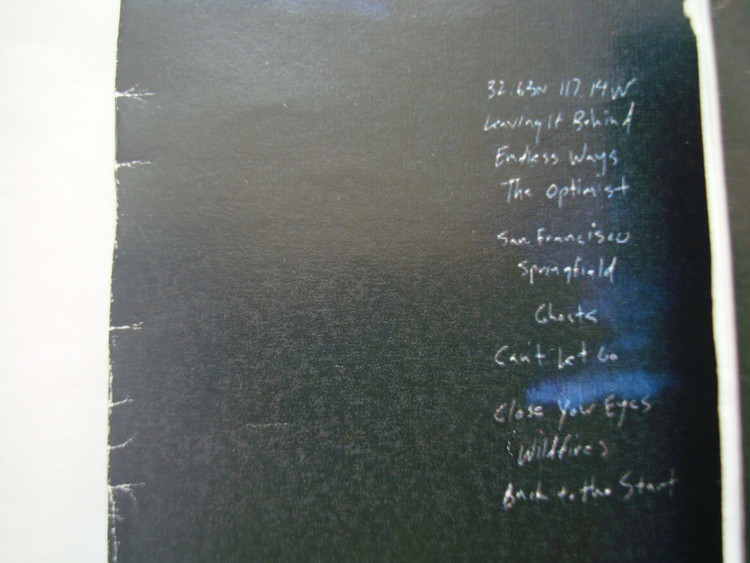 32.63N 117.14W
Leaving It Behind
Endless Ways
The Optimist
San Francisco
Springfield
Ghosts
Can't Let Go
Close Your Eyes
Wildfires
Back to the Start